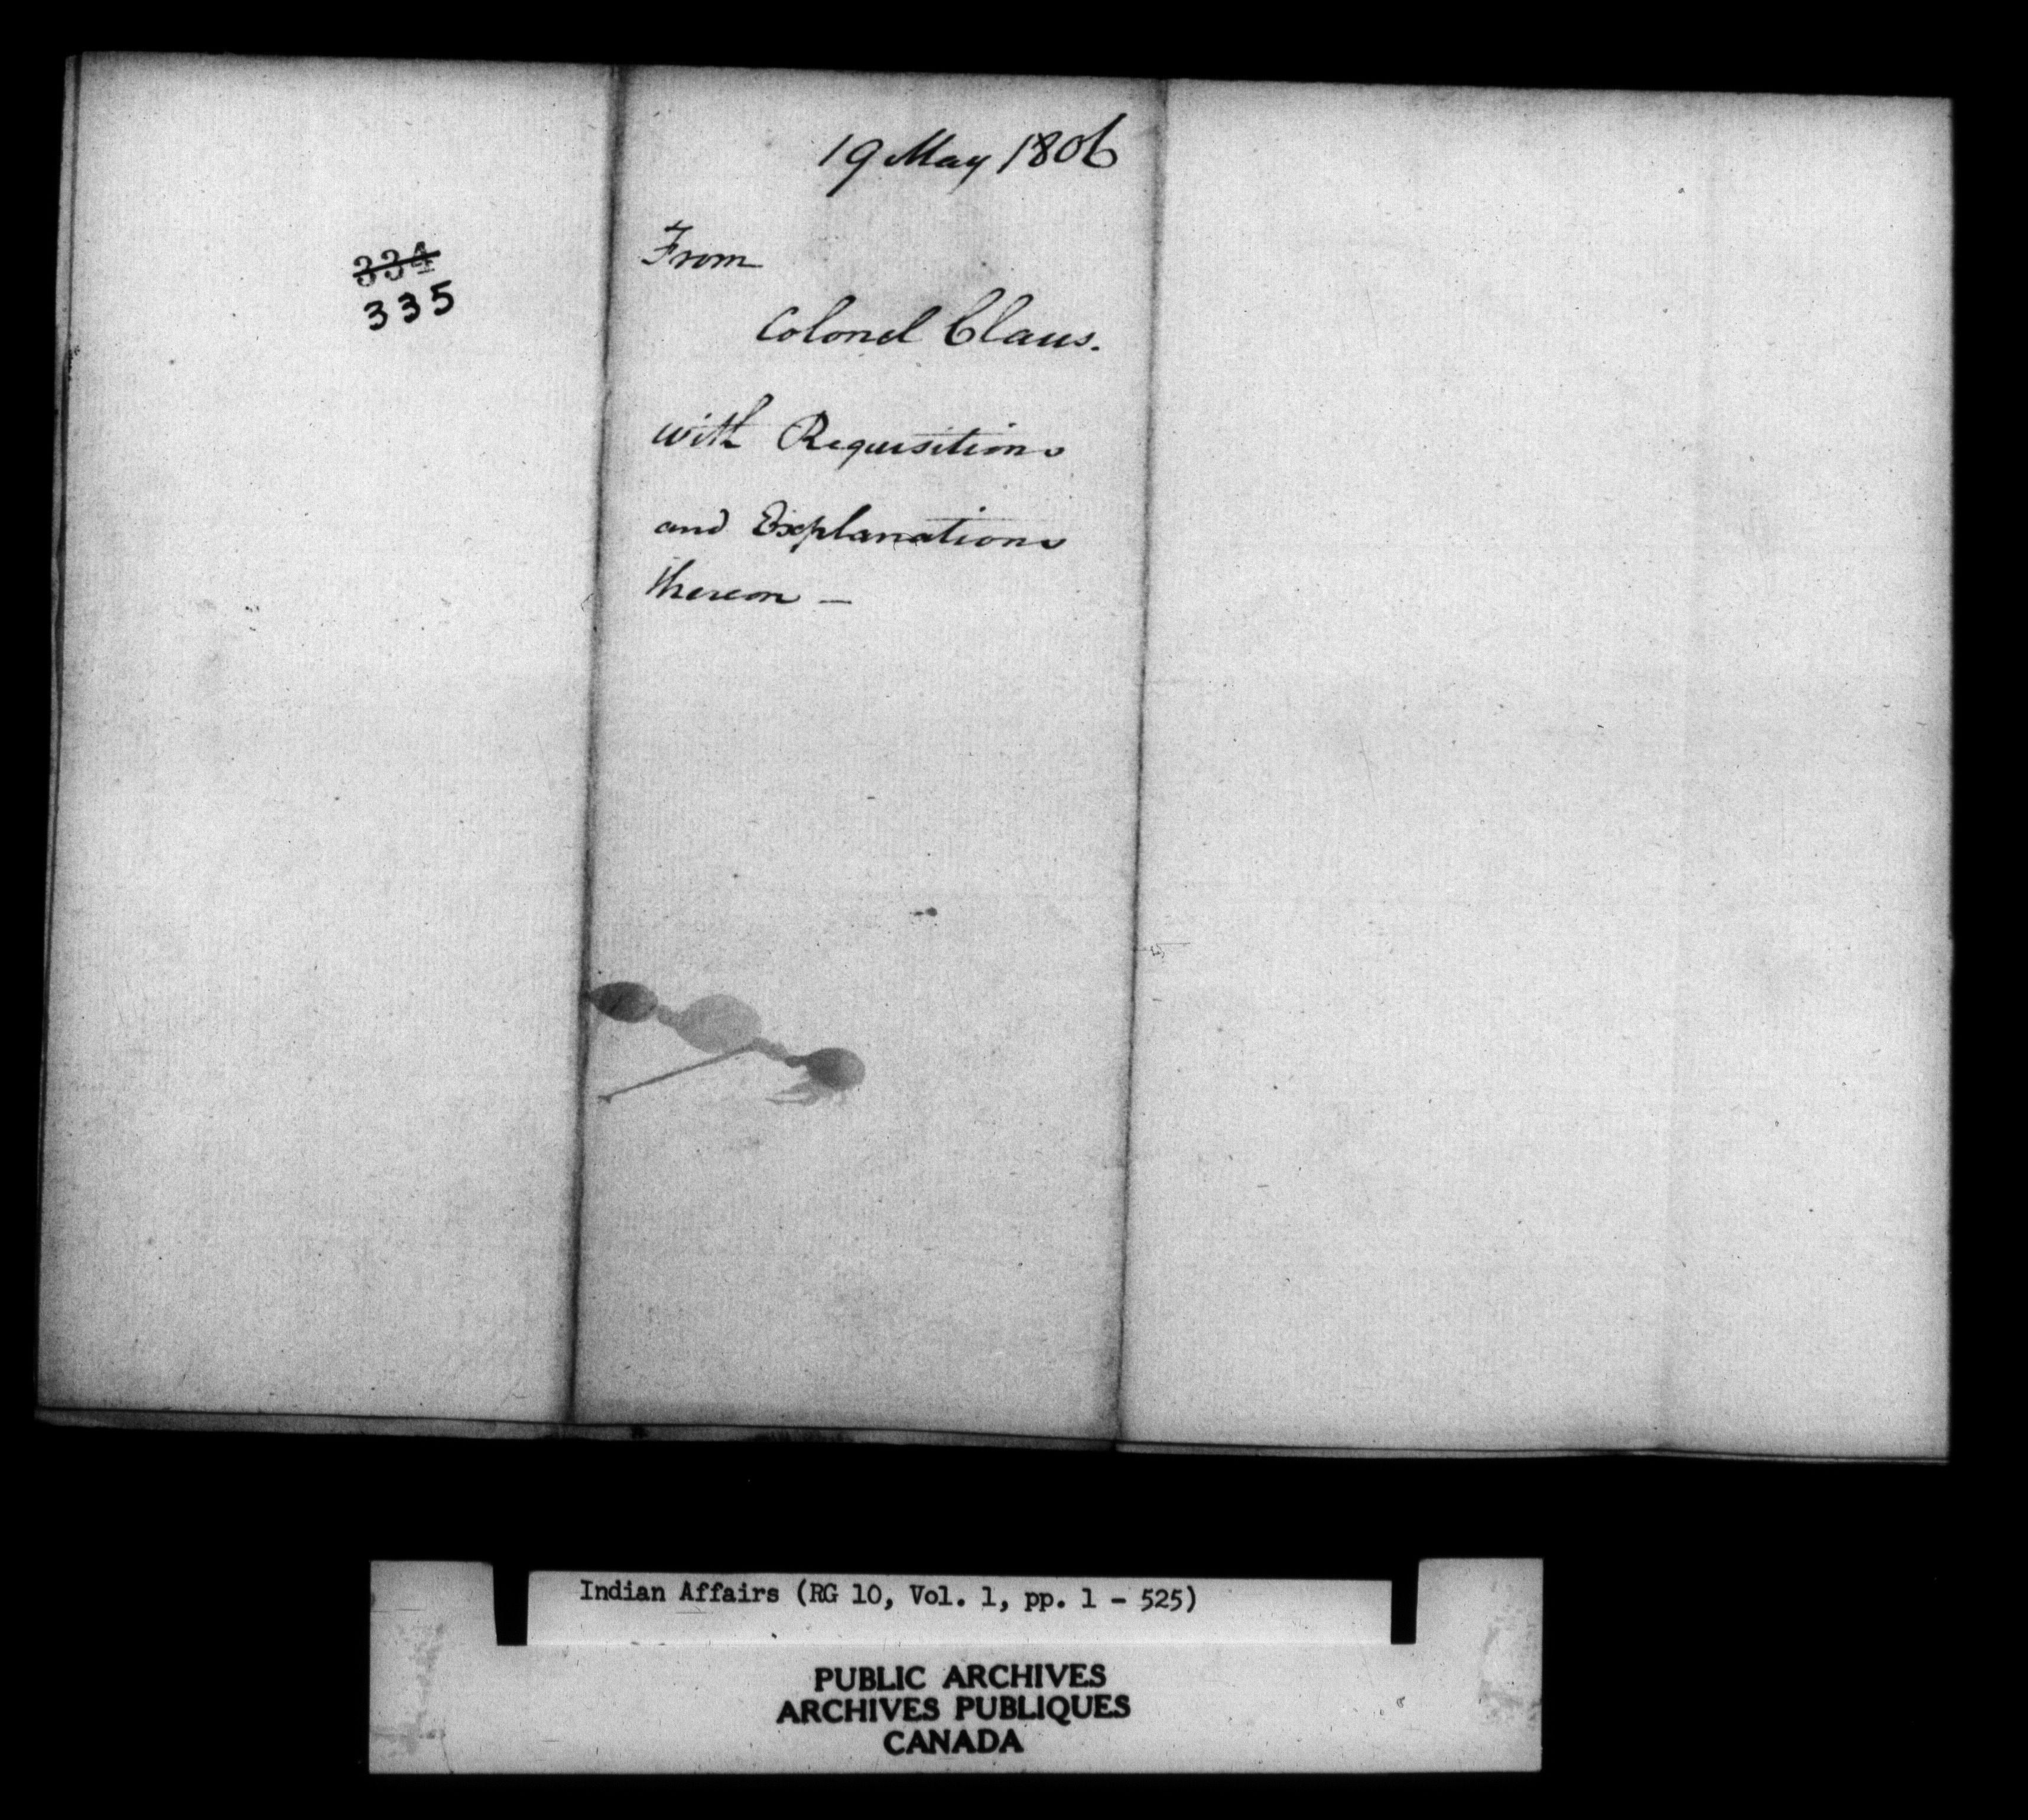 334
335
19 May 1806
From
Colonel Claus.
with Requisitions
and Explanations
thereon —
Indian Affairs (RG 10, Vol. 1, pp. 1 - 525)
PUBLIC ARCHIVES
ARCHIVES PUBLIQUES
CANADA